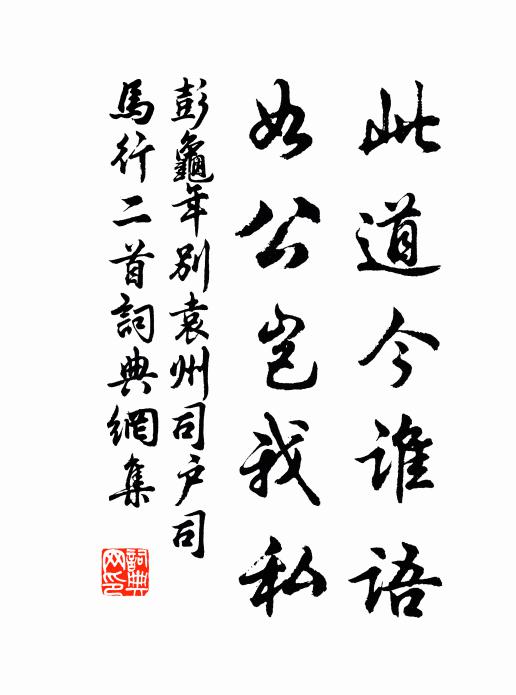 此道今誰語
如公豈我私
彭龜年別袁州司户司
馬行二首詞典網集
詞典網印